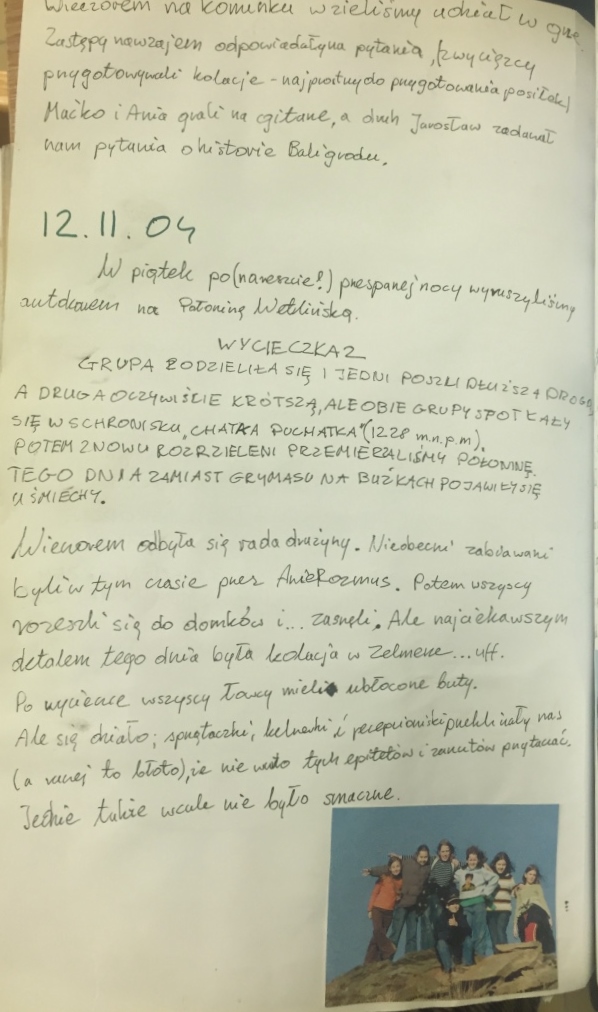 Wieczorem na kominku wzieliśmy udział w grze.
Zastępy nawzajem odpowiadały na pytania, (zwycięzcy
przygotowywali kolacje - najprostszy do przygotowania posiłek)
Maćko i Ania grali na gitarze, a druh Jarosław zadawał
nam pytania o historie Baligrodu.
12.11.04
W piątek po (nareszcie!) przespanej nocy wyruszyliśmy
autokarem na Połoninę Wetlińską.
WYCIECZKA 2
GRUPA ROZDZIELIŁA SIĘ I JEDNI POSZLI DŁUŻSZĄ DROGĄ
A DRUGA OCZYWIŚCIE KRÓTSZĄ, ALE OBIE GRUPY SPOTKAŁY
SIĘ W SCHRONISKU "CHATKA PUCHATKA" (1228 m.n.p.m).
POTEM ZNOWU ROZRZIELENI PRZEMIERZALIŚMY POŁONINĘ.
TEGO DNIA ZAMIAST GRYMASU NA BUŹKACH POJAWIŁY SIĘ
UŚMIECHY.
Wieczorem odbyła się rada drużyny. Nieobecni zabawiani
byli w tym czasie przez Anię Rozmus. Potem wszyscy
rozeszli się do domków i... zasnęli. Ale najciekawszym
detalem tego dnia była kolacja w Zelmerze... uff.
Po wycieczce wszyscy mieli ubłocone buty.
Ale się działo; sprzątaczki, kelnerki i recepcjonistki przeklinały nas
(a raczej to błoto), że nie warto tych epitetów i zarzutów przytaczać.
Jedzenie także wcale nie było smaczne.